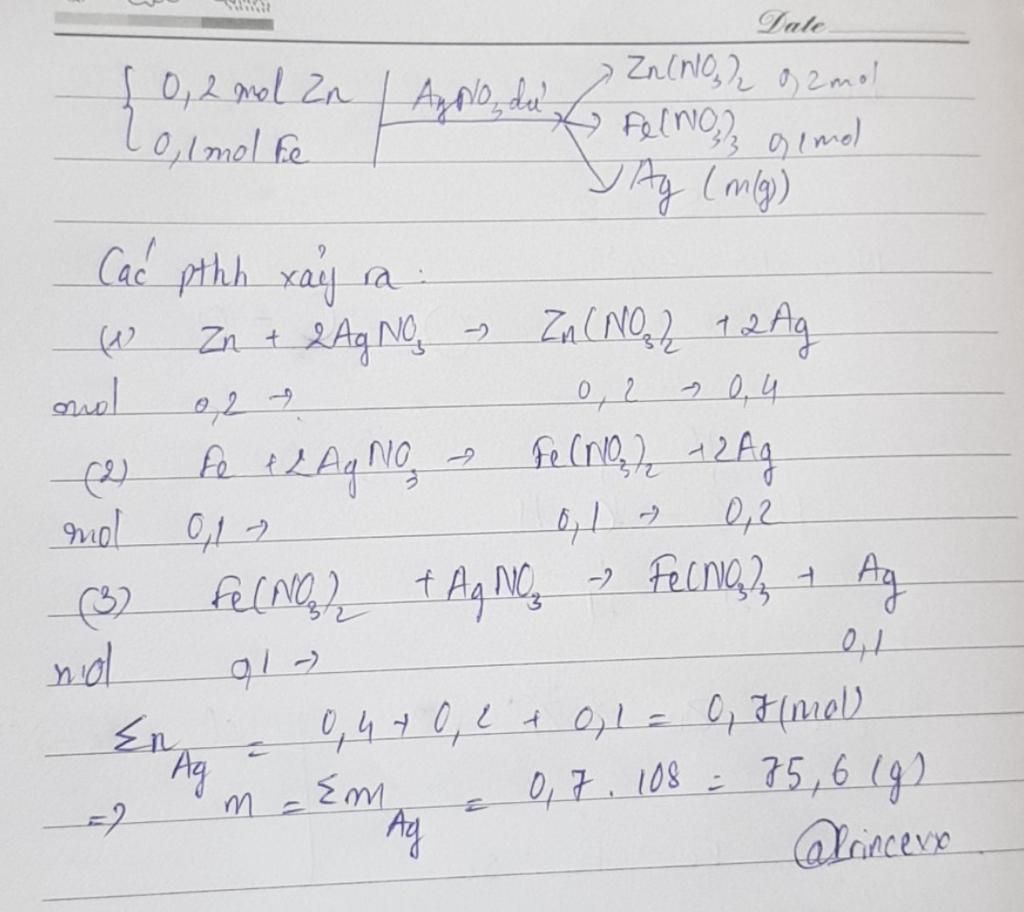 Date
{ 0,2 mol Zn | AgNO3 dư → Zn(NO3)2 0,2mol
0,1 mol Fe → Fe(NO3)3 0,1mol
↘ Ag (m(g))
Các pthh xảy ra :
(1) Zn + 2AgNO3 → Zn(NO3)2 + 2Ag
mol 0,2 → 0,2 → 0,4
(2) Fe + 2AgNO3 → Fe(NO3)2 + 2Ag
mol 0,1 → 0,1 → 0,2
(3) Fe(NO3)2 + AgNO3 → Fe(NO3)3 + Ag
mol 0,1 → 0,1
Σn Ag = 0,4 + 0,2 + 0,1 = 0,7(mol)
=> m = Σm Ag = 0,7 . 108 = 75,6 (g)
@Princevx